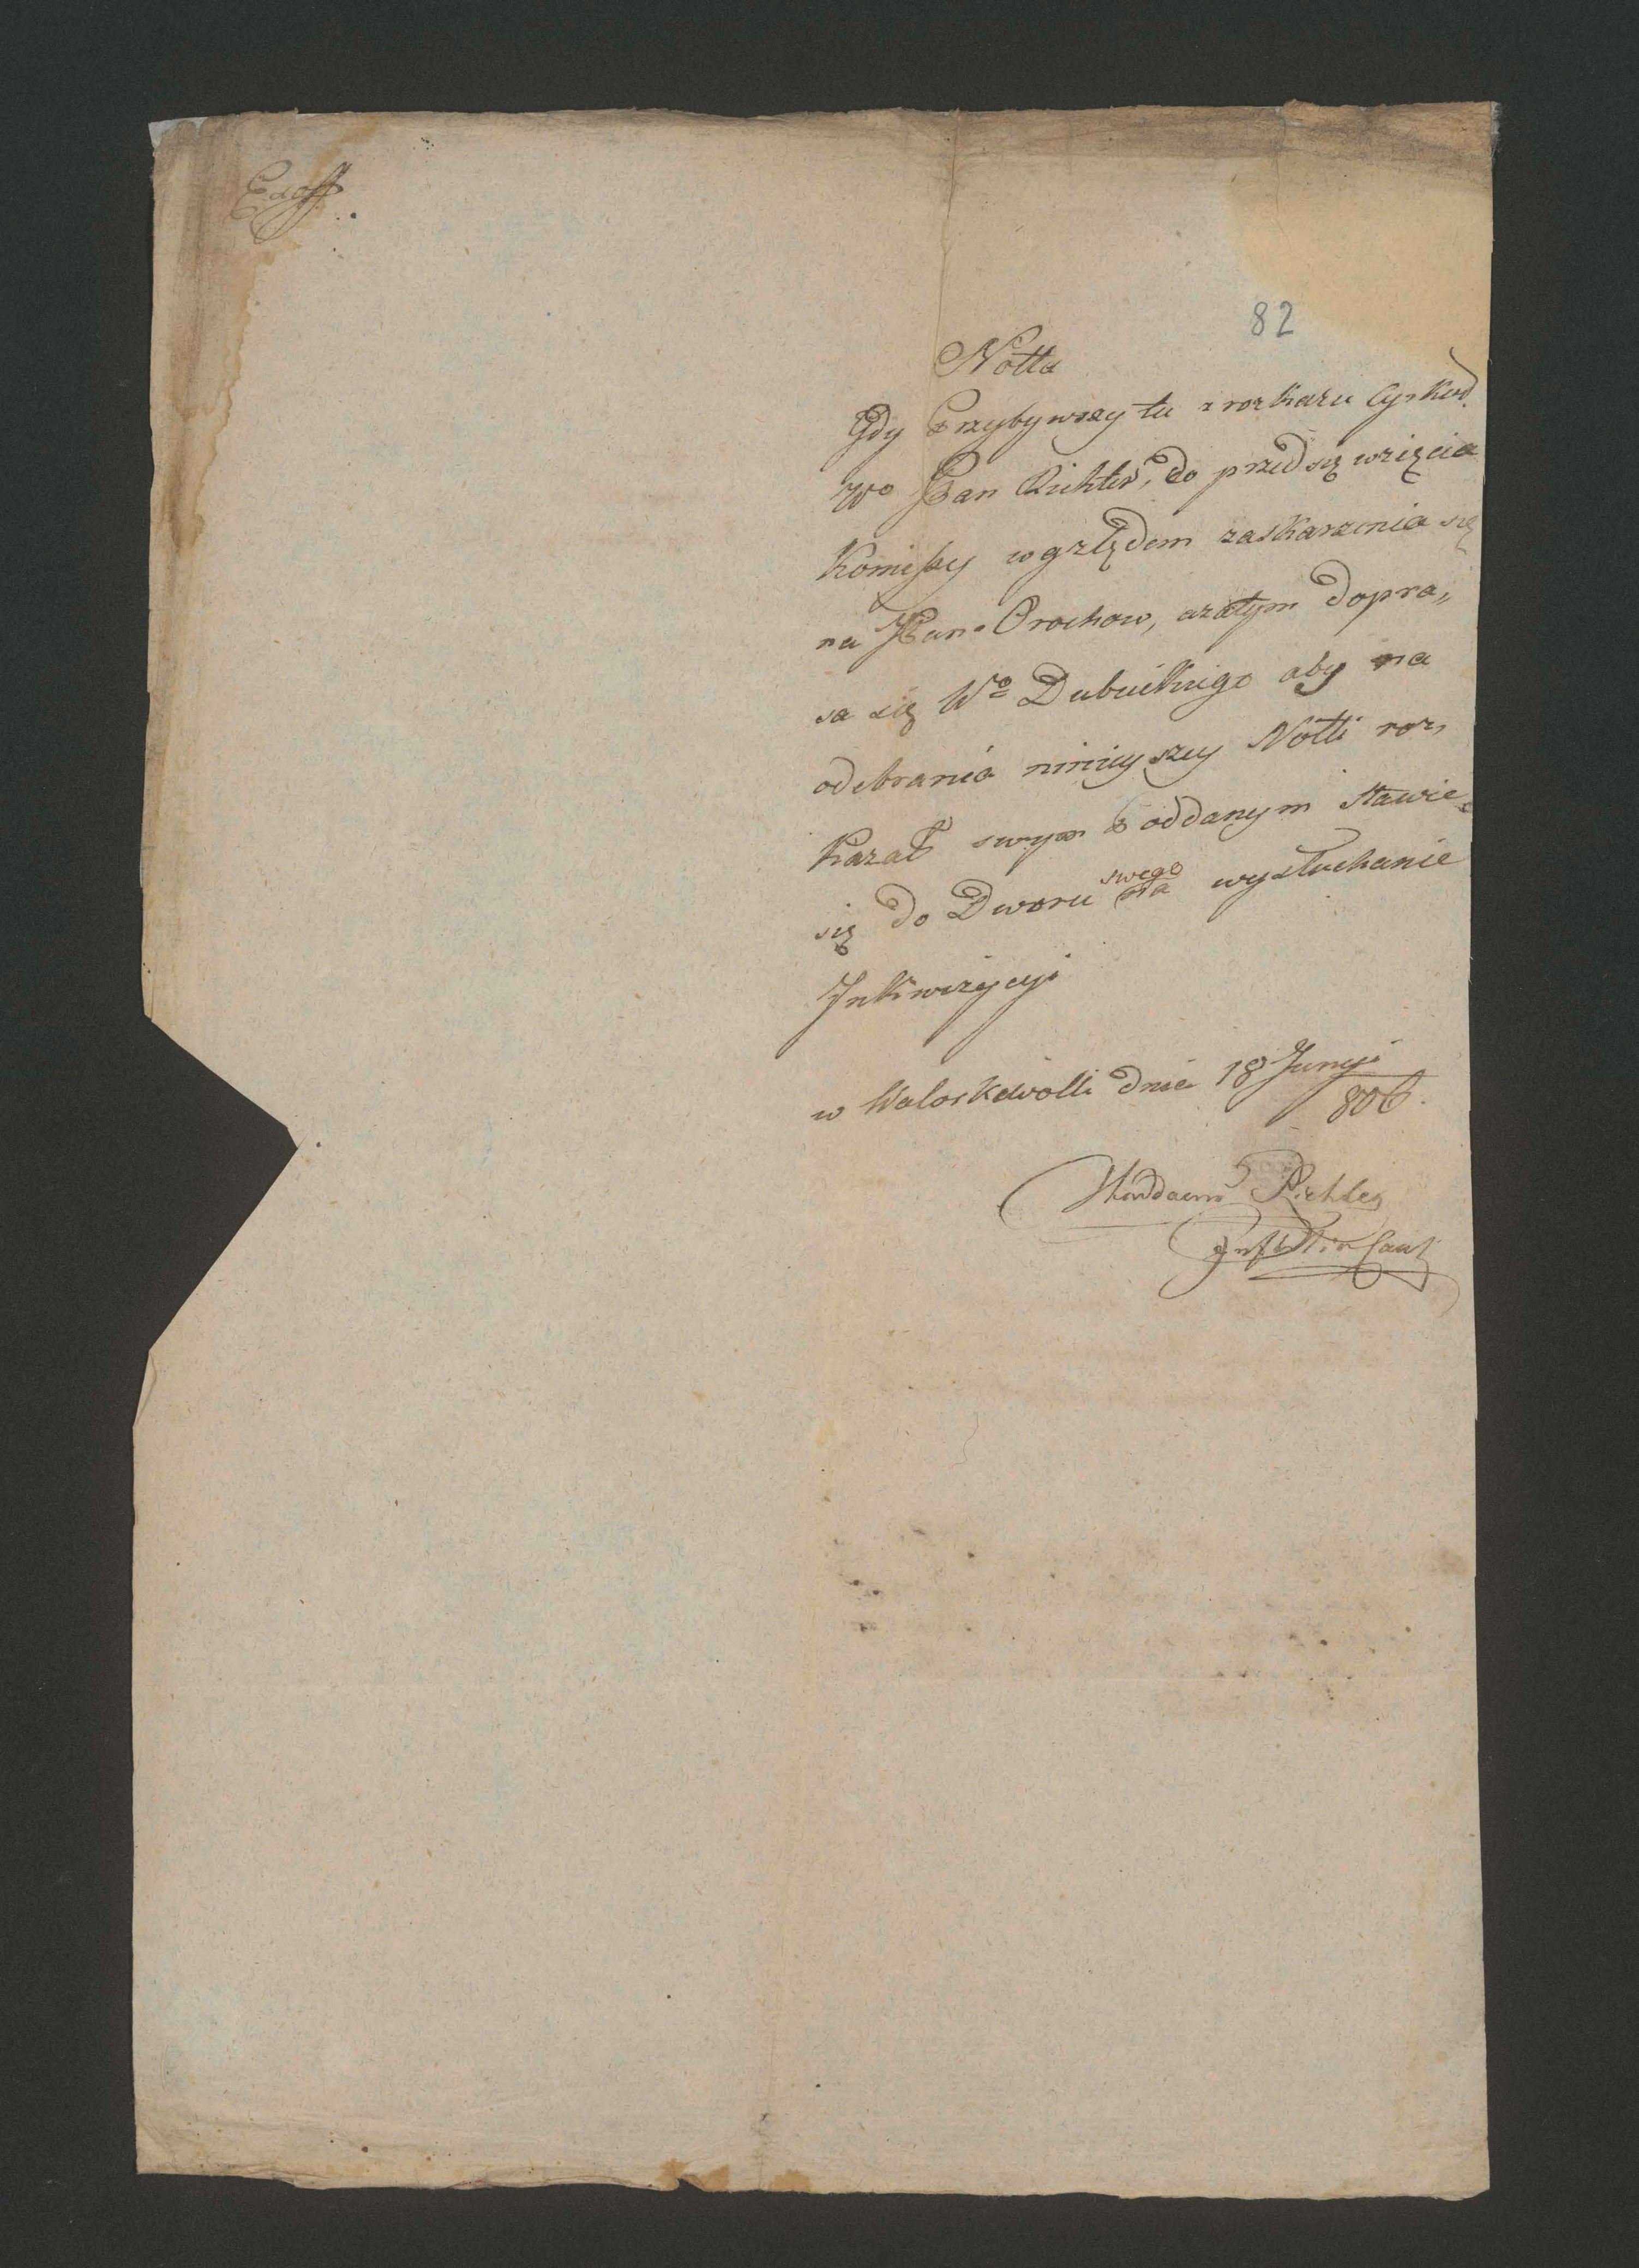 Ex off.
82
Notta
Gdy Przybywszy tu z rozkazu Cyrkuł.
Wo Pan Richter, do przedsięwzięcia
Komissyi wgzlędem zaskarzenia się
na Pan Orochow, azatym dopra„
sa się Wo Dubnickiego aby na
odebrania ninieyszey Notti roz„
kazał swym Poddanym Stawic
się do Dworu swego na wysłuchanie
Inkwizycyi
w Woloskawolli dnia 18 Junyi
806.
Richter